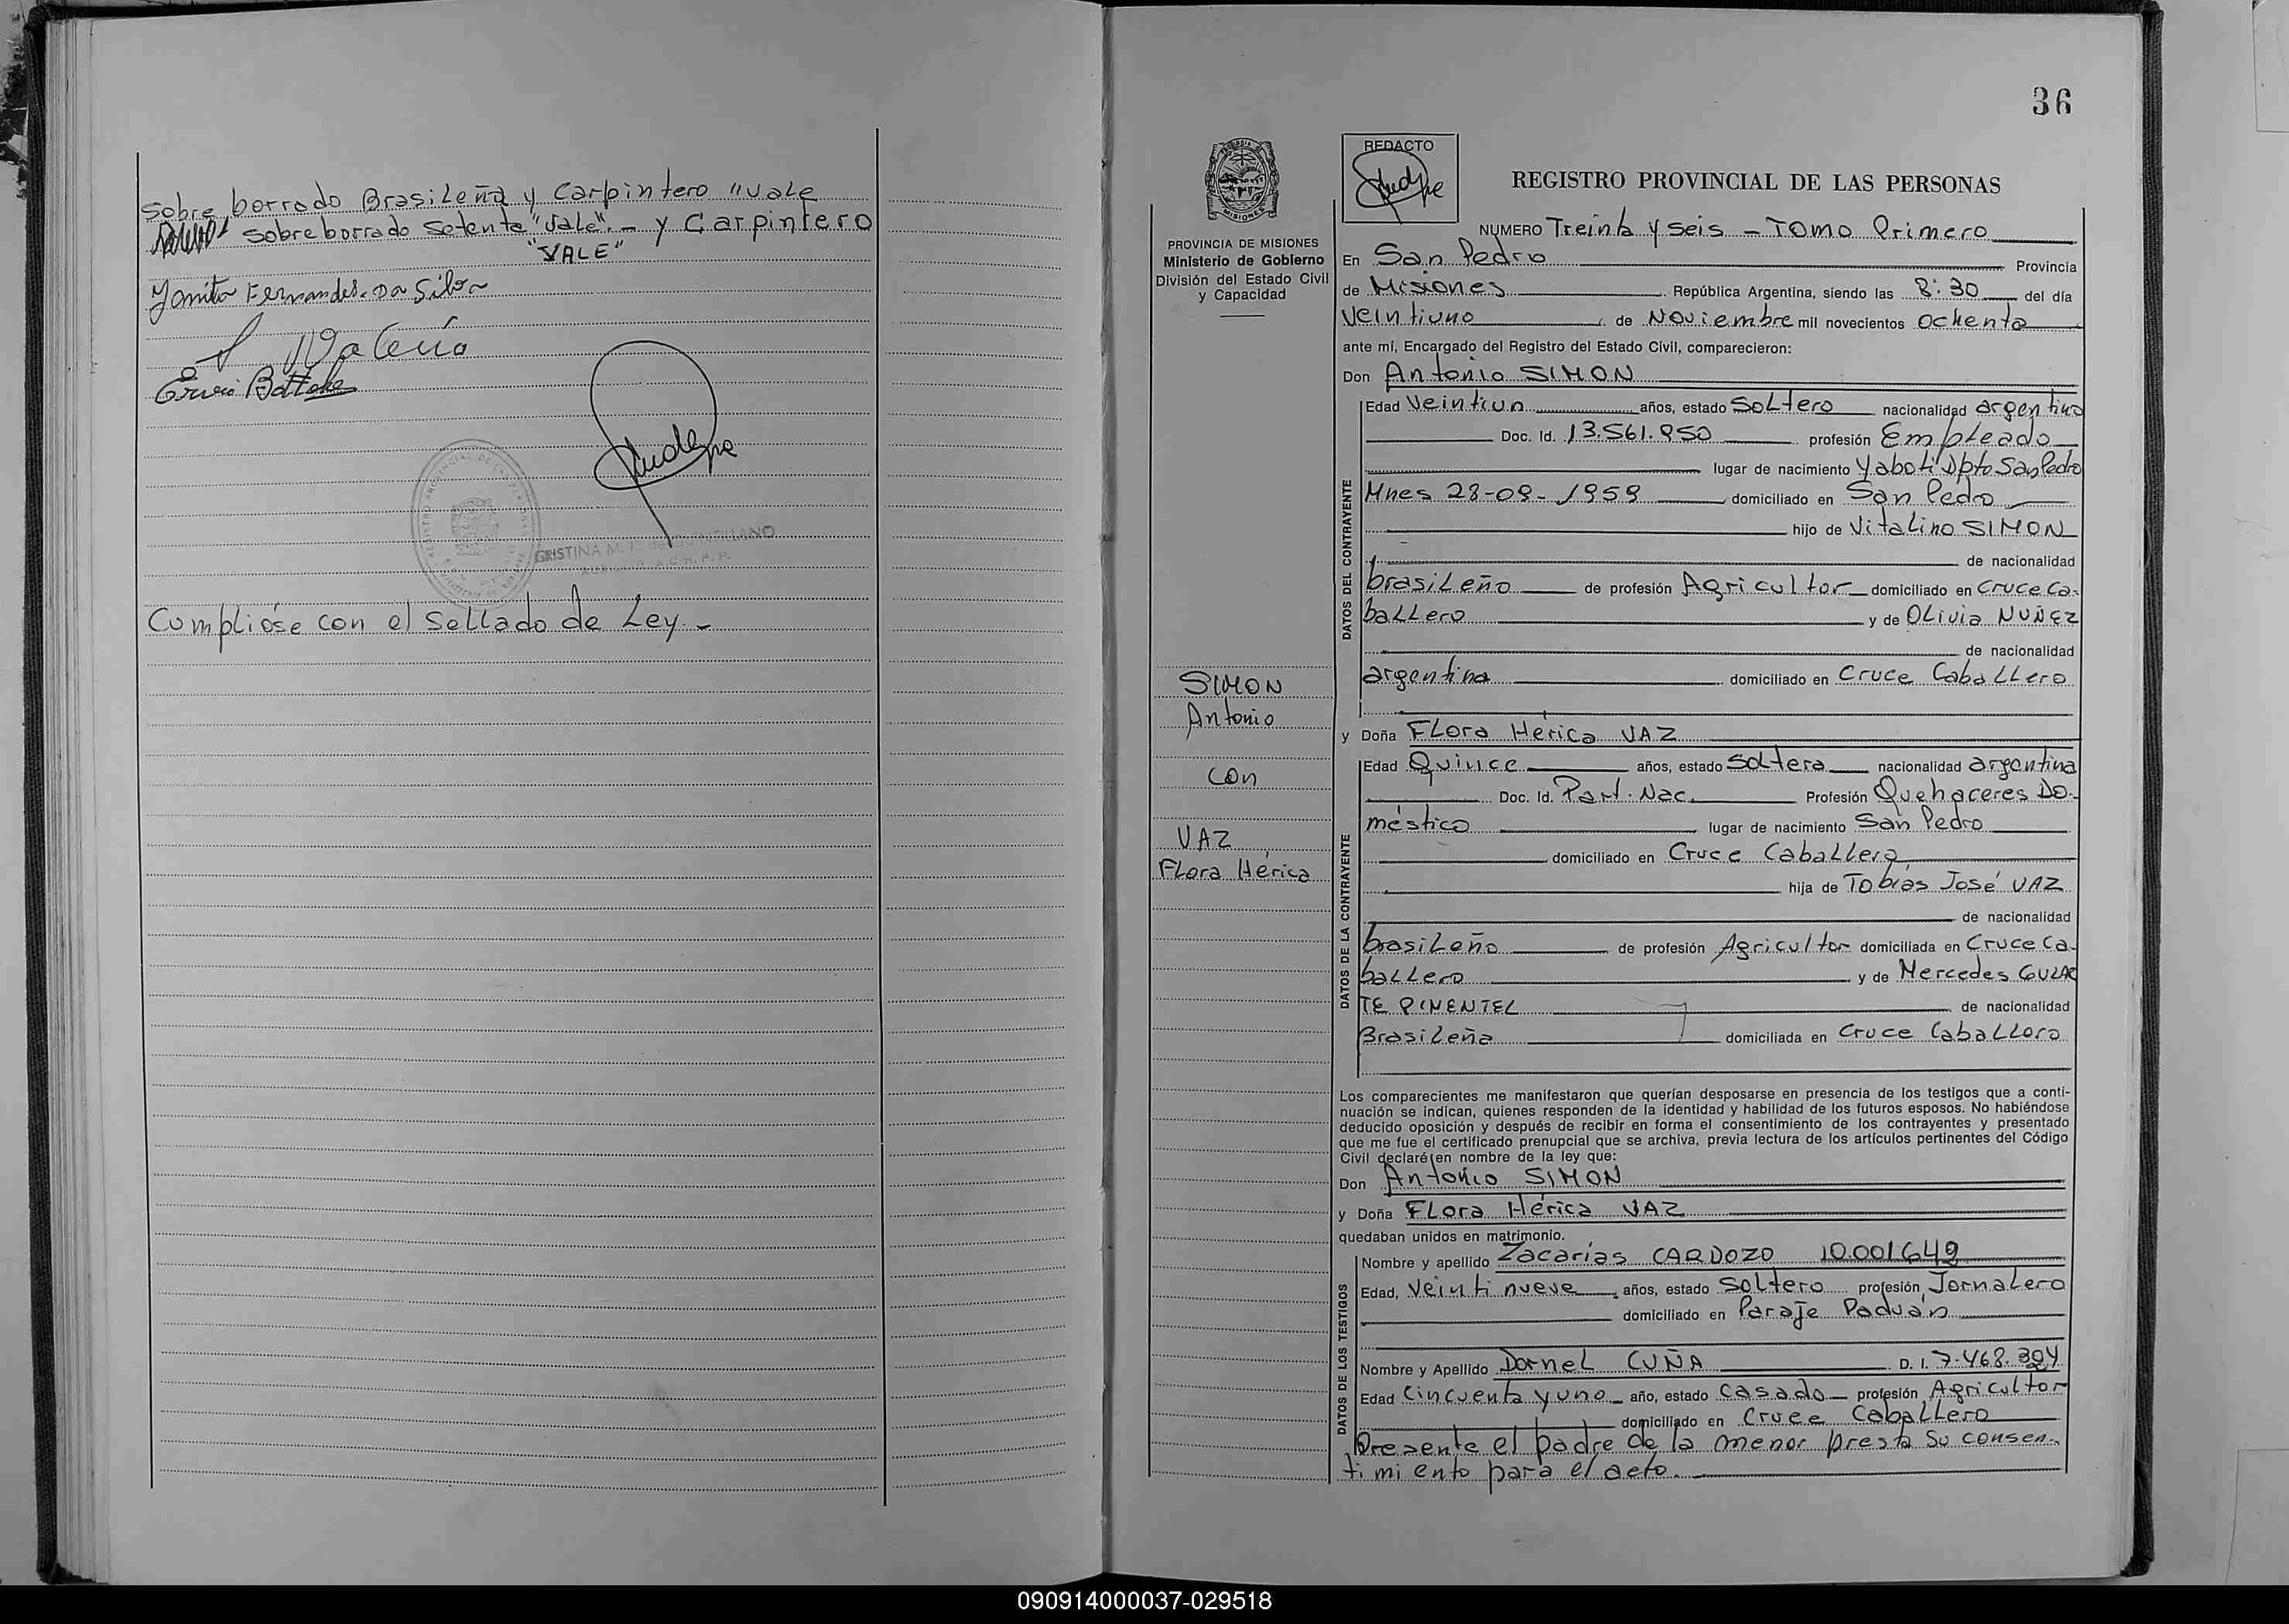 Sobre borrado Brasileña y Carpintero "vale
sobre borrado setenta "vale".- y Carpintero
"VALE"
Fernandes. Da Silva
Valerio
CRISTINA M.
Cumplióse con el Sellado de Ley.-
36
REDACTO
REGISTRO PROVINCIAL DE LAS PERSONAS
MISIONES
PROVINCIA DE MISIONES
Ministerio de Gobierno
División del Estado Civil
y Capacidad
NUMERO Treinta y seis - TOMO Primero
En San Pedro Provincia
de Misiones República Argentina, siendo las 8:30 del día
Veintiuno de Noviembre mil novecientos ochenta
ante mí, Encargado del Registro del Estado Civil, comparecieron:
Don Antonio SIMON
DATOS DEL CONTRAYENTE
Edad Veintiun años, estado Soltero nacionalidad argentino
Doc. Id. 13.561.950 profesión Empleado
lugar de nacimiento Yaboti Dpto San Pedro
Mnes 28-09-1959 domiciliado en San Pedro
hijo de Vitalino SIMON
de nacionalidad
brasileño de profesión Agricultor domiciliado en Cruce Ca-
ballero y de Olivia NUÑEZ
de nacionalidad
argentina domiciliado en Cruce Caballero
SIMON
Antonio
con
VAZ
Flora Hérica
y Doña Flora Hérica VAZ
DATOS DE LA CONTRAYENTE
Edad Quince años, estado Soltera nacionalidad argentina
Doc. Id. Part. Nac. Profesión Quehaceres Do-
méstico lugar de nacimiento San Pedro
domiciliado en Cruce Caballero
hija de Tobías José VAZ
de nacionalidad
brasileño de profesión Agricultor domiciliada en Cruce Ca-
ballero y de Mercedes GULAR
TE PIMENTEL de nacionalidad
Brasileña domiciliada en Cruce Caballero
Los comparecientes me manifestaron que querían desposarse en presencia de los testigos que a conti-
nuación se indican, quienes responden de la identidad y habilidad de los futuros esposos. No habiéndose
deducido oposición y después de recibir en forma el consentimiento de los contrayentes y presentado
que me fue el certificado prenupcial que se archiva, previa lectura de los artículos pertinentes del Código
Civil declaré en nombre de la ley que:
Don Antonio SIMON
y Doña Flora Hérica VAZ
quedaban unidos en matrimonio.
DATOS DE LOS TESTIGOS
Nombre y apellido Zacarías CARDOZO 10.001.649
Edad, Veinti nueve años, estado Soltero profesión, Jornalero
domiciliado en Paraje Paduán
Nombre y Apellido Dornel CUÑA D. I. 7.468.394
Edad Cincuenta y uno año, estado Casado profesión Agricultor
domiciliado en Cruce Caballero
Presente el padre de la menor presta su consen-
timiento para el acto.
090914000037-029518